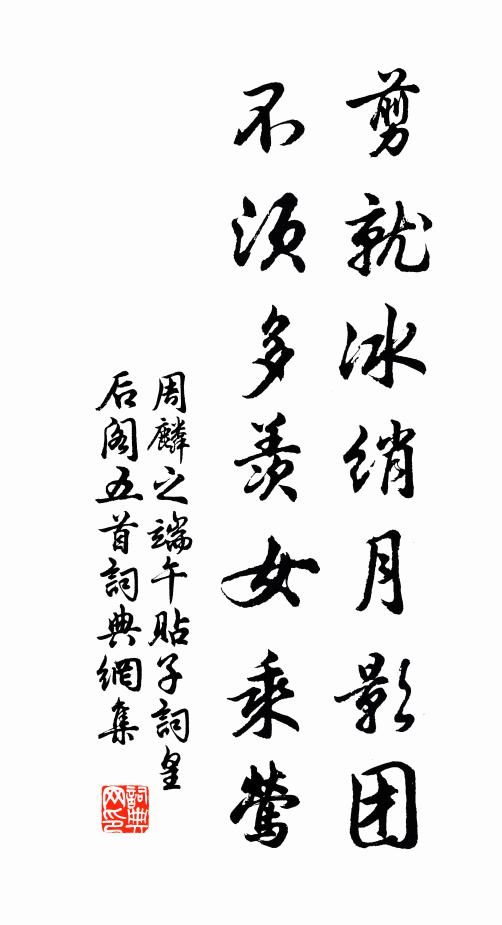 剪就冰绡月影团
不须多羡女乘莺
周麟之端午貼子詞皇
后阁五首詞典網集
詞典网印